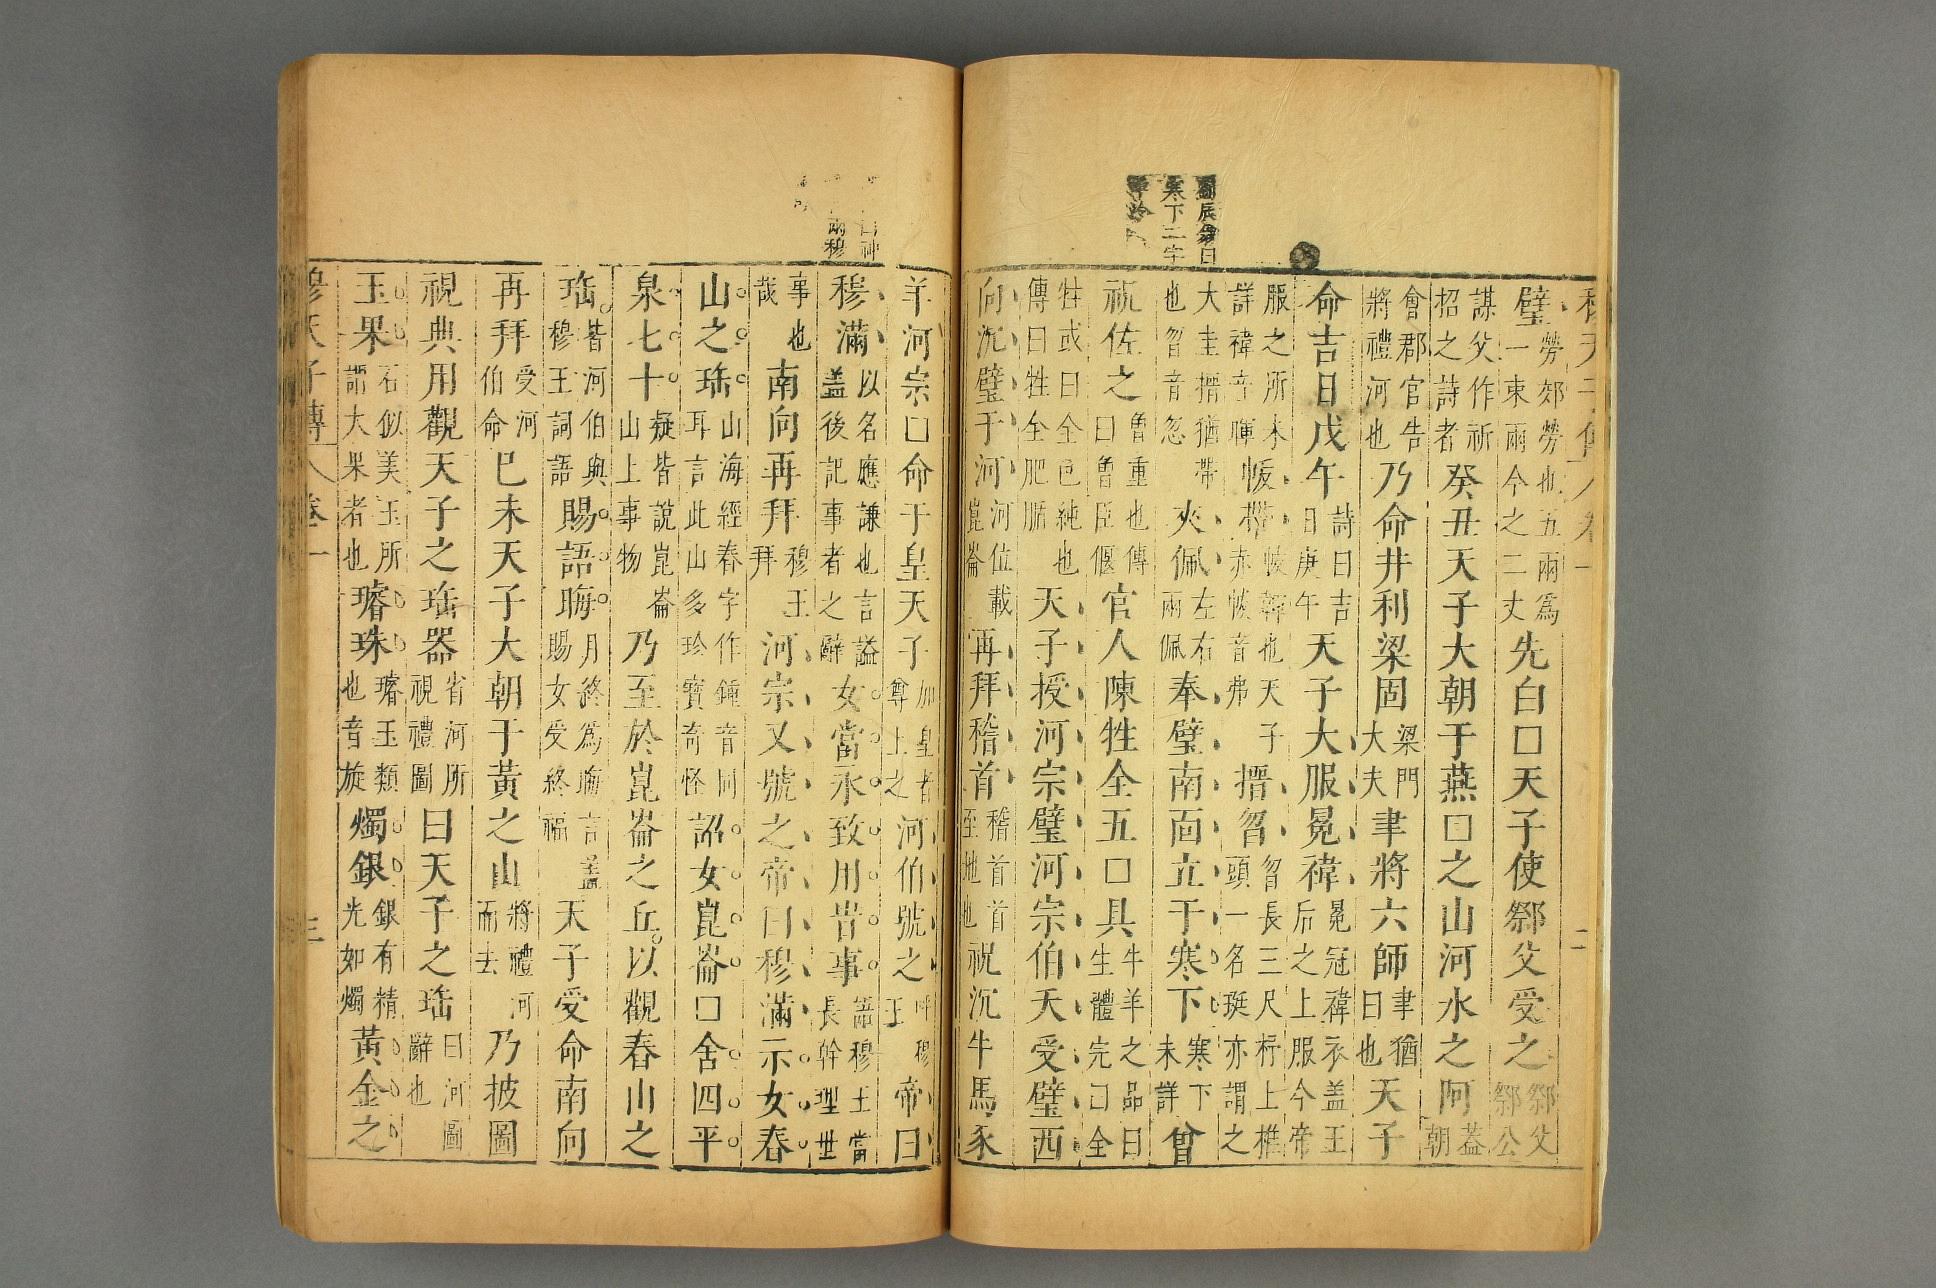 劉辰翁曰
寒下二字
穆天子傳 卷一 二
璧勞郊勞也五兩爲一東兩今之二丈先白□天子使䣝父受之䣝父䣝公
謀父作祈招之詩者癸丑天子大朝于燕□之山河水之阿蓋朝
會郡官告將禮河也乃命井利梁固梁門大夫聿將六師聿猶曰也天子
命吉日戊午詩曰吉日庚午天子大服冕褘冕冠褘衣盖王后之上服今帝
服之所未詳褘音暉帗帶帗韠也天子赤帗音弗搢曶曶長三尺杼上椎頭一名珽亦謂之
大圭搢猶帶也曶音忽夾佩左右兩佩奉璧南面立于寒下寒下未詳曾
祝佐之魯重也傳曰魯臣偃官人陳牲全五□具牛羊之品曰生體完曰全
牲或曰全色純也傳曰牲全肥腯天子授河宗璧河宗伯夭受璧西
向沉璧于河河位載崑崙再拜稽首稽首首至地也祝沉牛馬豕
羊河宗□命于皇天子加皇者尊上之河伯號之呼穆王帝曰
穆滿以名應謙也言謚盖後記事者之辭女當永致用旹事語穆王當長幹理世
事也哉南向再拜穆王拜河宗又號之帝曰穆滿示女春
山之珤山海經春字作鍾音同耳言此山多珍寶奇怪詔女崑崙□舍四平
泉七十疑皆說崑崙山上事物乃至於崑崙之丘以觀春山之
珤皆河伯與穆王詞語賜語晦月終爲晦言盖賜女受終福天子受命南向
再拜受河伯命巳未天子大朝于黃之山將禮河而去乃披圖
視典用觀天子之珤器省河所視禮圖曰天子之珤曰河圖辭也
玉果石似美玉所謂大果者也璿珠璿玉類也音旋燭銀銀有精光如燭黃金之
穆天子傳 卷一 三